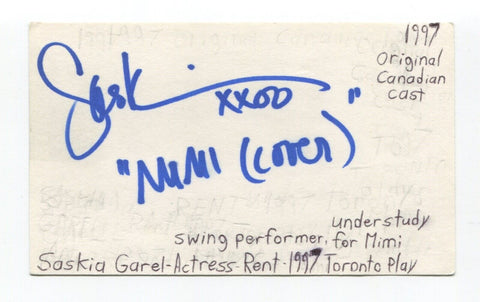 1997
Original
Canadian
cast
Saskia
xxoo "
"MiMi (cover)
understudy
swing performer, for Mimi
Saskia Garel-Actress-Rent-1997 Toronto Play